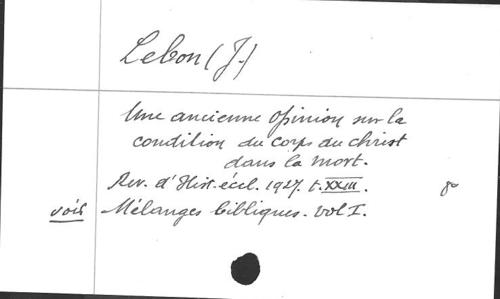 Lebon (J.)
Une ancienne opinion sur la
condition du corps du Christ
dans la mort.
Rev. d'Hist. écel. 1927. t. XXIII. 8°
voir Mélanges bibliques. vol I.